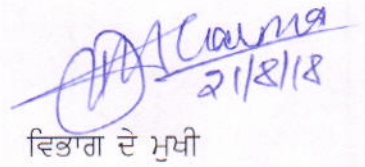 21/8/18
ਵਿਭਾਗ ਦੇ ਮੁਖੀ